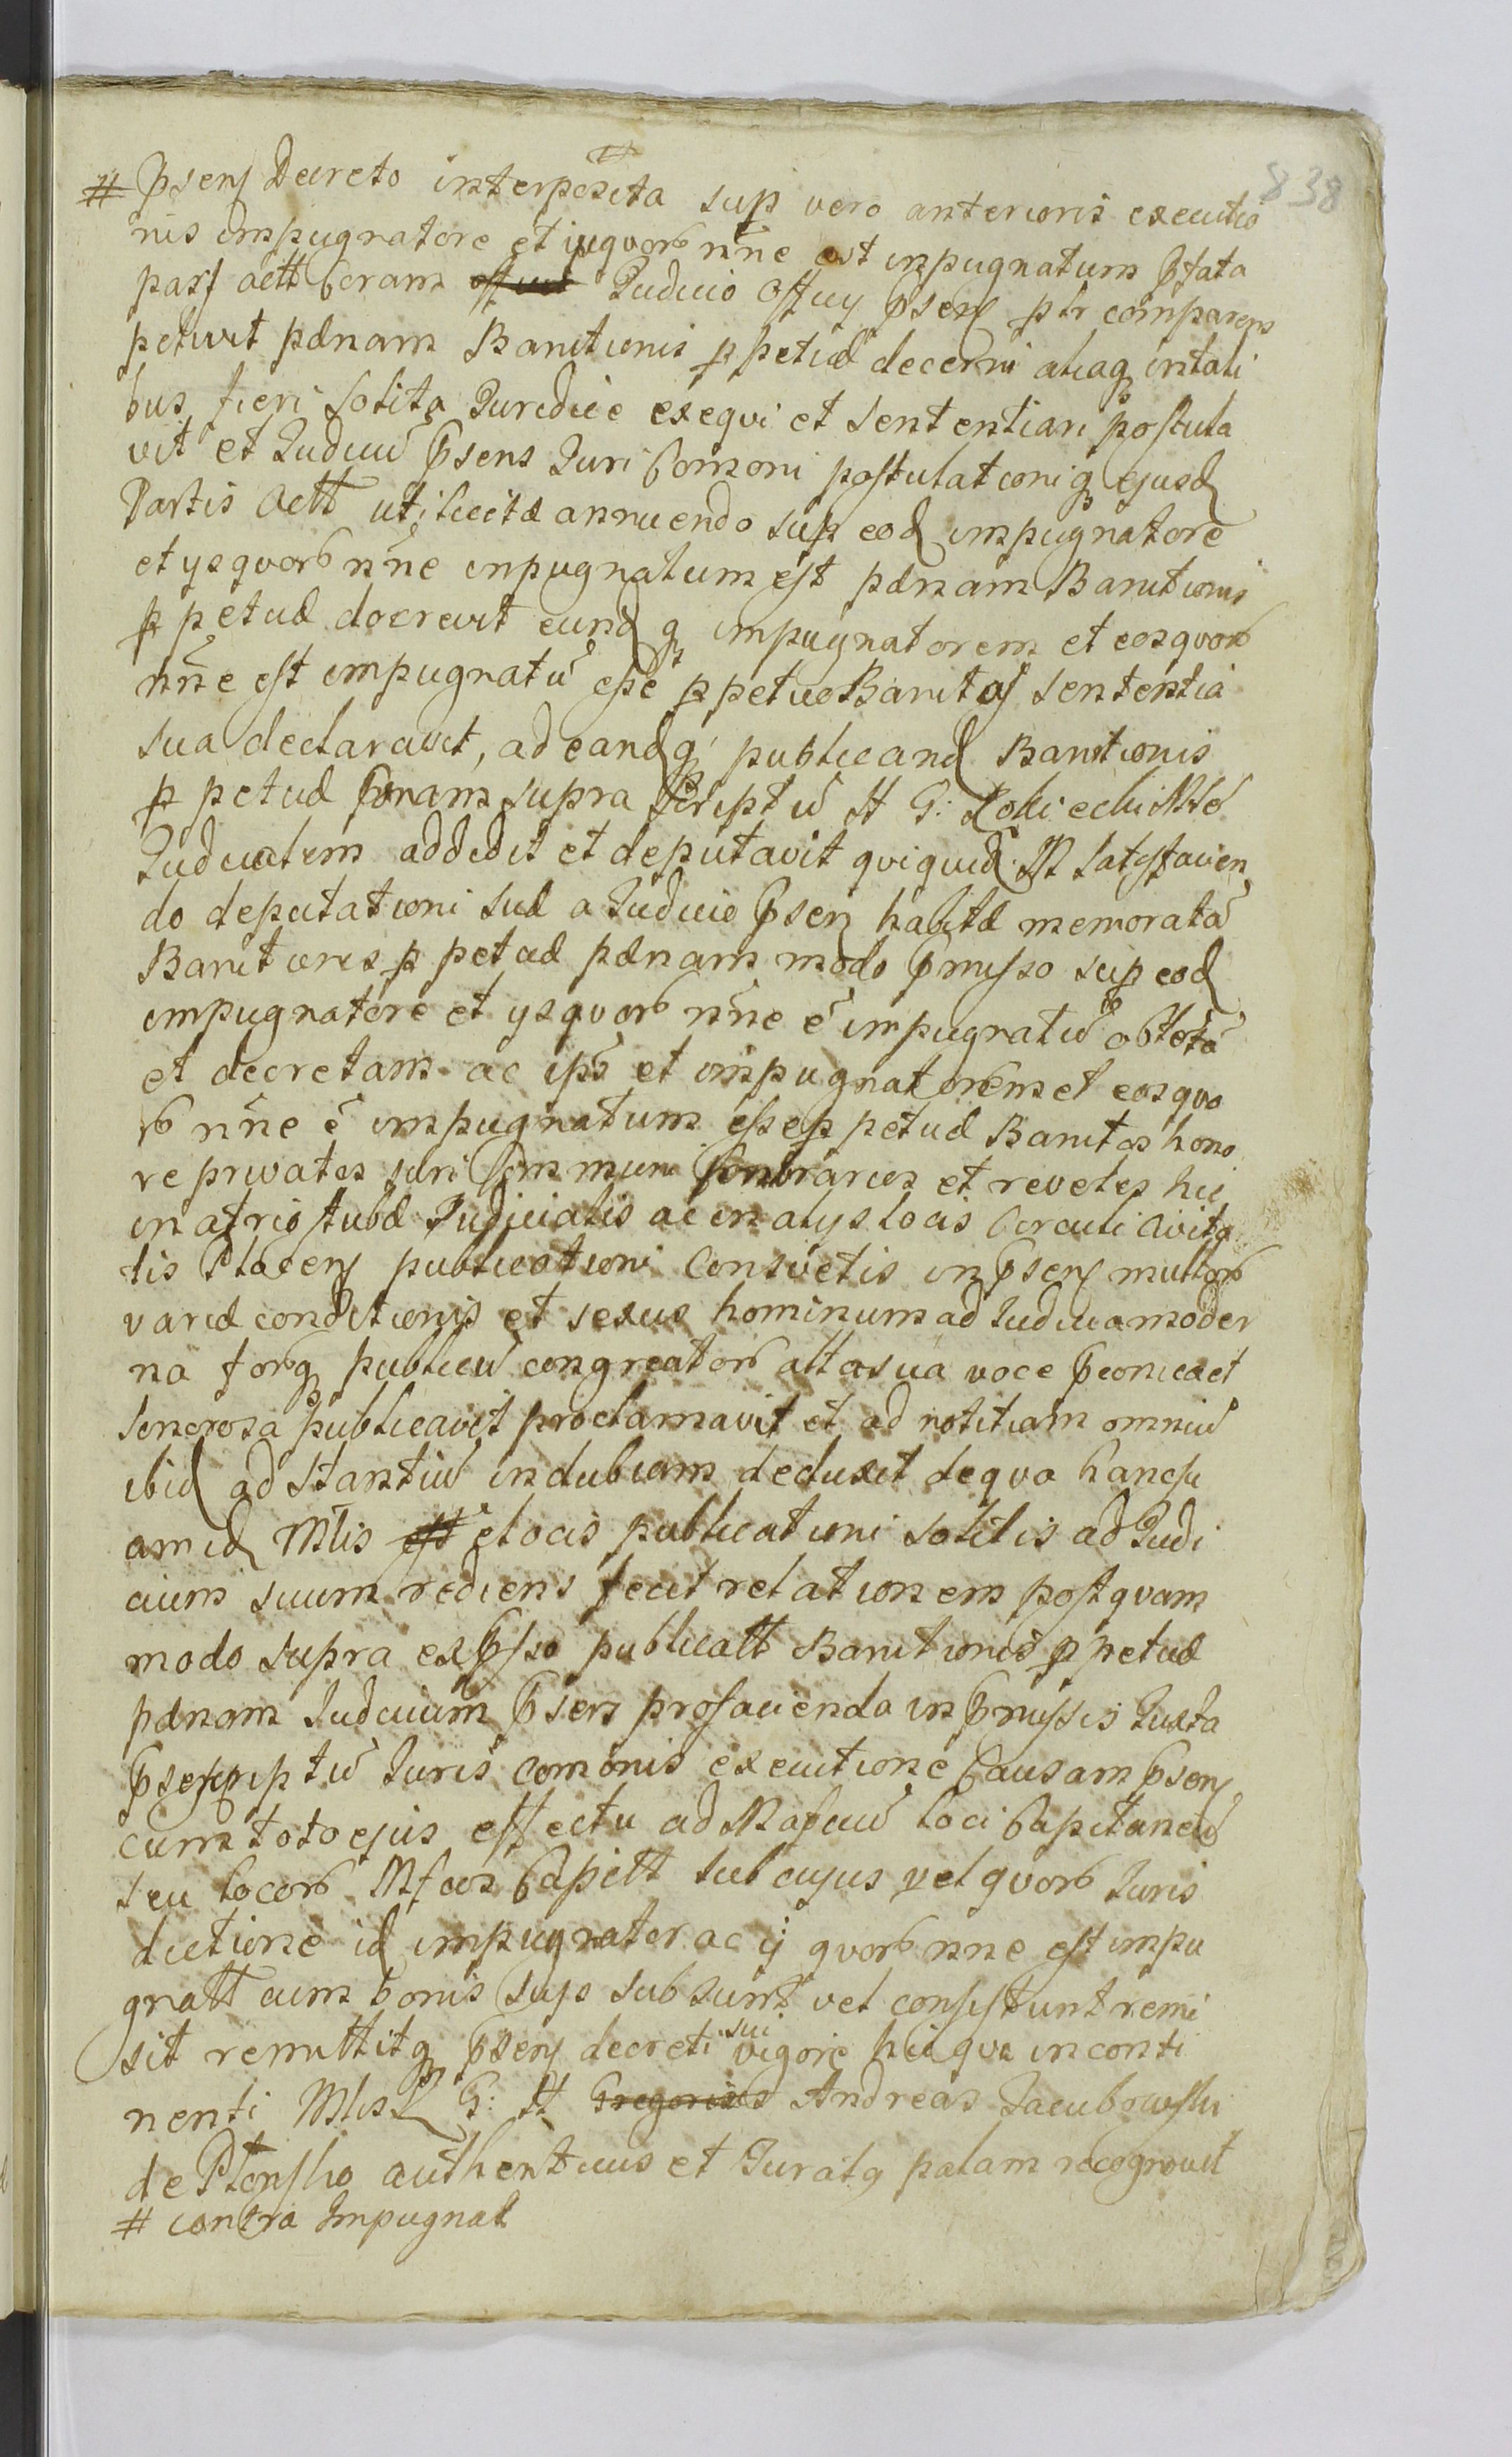 838
# Psens Decreto interposita sup vero anterioris executio
nis impugnatore et iis quorb nne est inpugnatum Pfata
pars actt Coram Judicio Officy Psens ptr comparens
petivit pænam Banitionis ppetuæ decerni aliaq intali
bus fieri solita Juridice exequi et sententiari postula
vit et Judiciu Psens Juri Comoni postulationiq ejusd
Partis Actt uti licitæ annuendo sup eod impugnatore
et ys quorb nne inpugnatum est pænam Banitionis
ppetuæ decrevit eundq impugnatorem et eos quorb
nne est impugnatu esse ppetuo Banitos sententia
sua declaravit, ad eandq publicand Banitionis
ppetuæ pænam supra scriptu
Judicialem addidit et deputavit qui quid satisfacien
do deputationi suæ a Judicio Psens habitæ memorata
Banitionis ppetuæ pænam modo Pmisso sup eod
impugnatore et ys quorb nne e impugnatu obtenta
et decretam ac ips et impugnatorem et eos quo
rb nne e impugnatum esse ppetuæ Banitos hono
re privatos juri communi contrarios et reveles hic
in atrio stubæ Judicialis ac in alys locis Circuli Civita
tis publicationi consuetis in Psens multorb
variæ conditionis et sexus hominum ad Judicia moder
na forq publicu congregatorb alta sua voce Pconica et
sonorosa publicavit proclamavit et ad notitiam omniu
ibid adstantiu indubiam deduxit de qua hancse
am id Mlis e locis publicationi solitis ad Judi
cium suum rediens fecit relationem post quam
modo supra exPsso publicatt Banitionis ppetuæ
pænam Judicium Psens pro facienda in Pmissis Juxta
Pscriptu Juris comonis executione Causam Psens
cum toto ejus effectu ad Mafcu loci Capitaneu
seu locorb Mfcos Capitt sub cujus vel quorb Juris
dictione id impugnator ac ij quorb nne est impu
gnatt cum bonis suys subsunt vel consistunt remi
sit remittitq Psens decreti sui vigore hic que inconti
nenti Mlis G: Gregorius Andreas Jacubowski
de authenticus et Juratq palam recognovit
# contra Impugnat